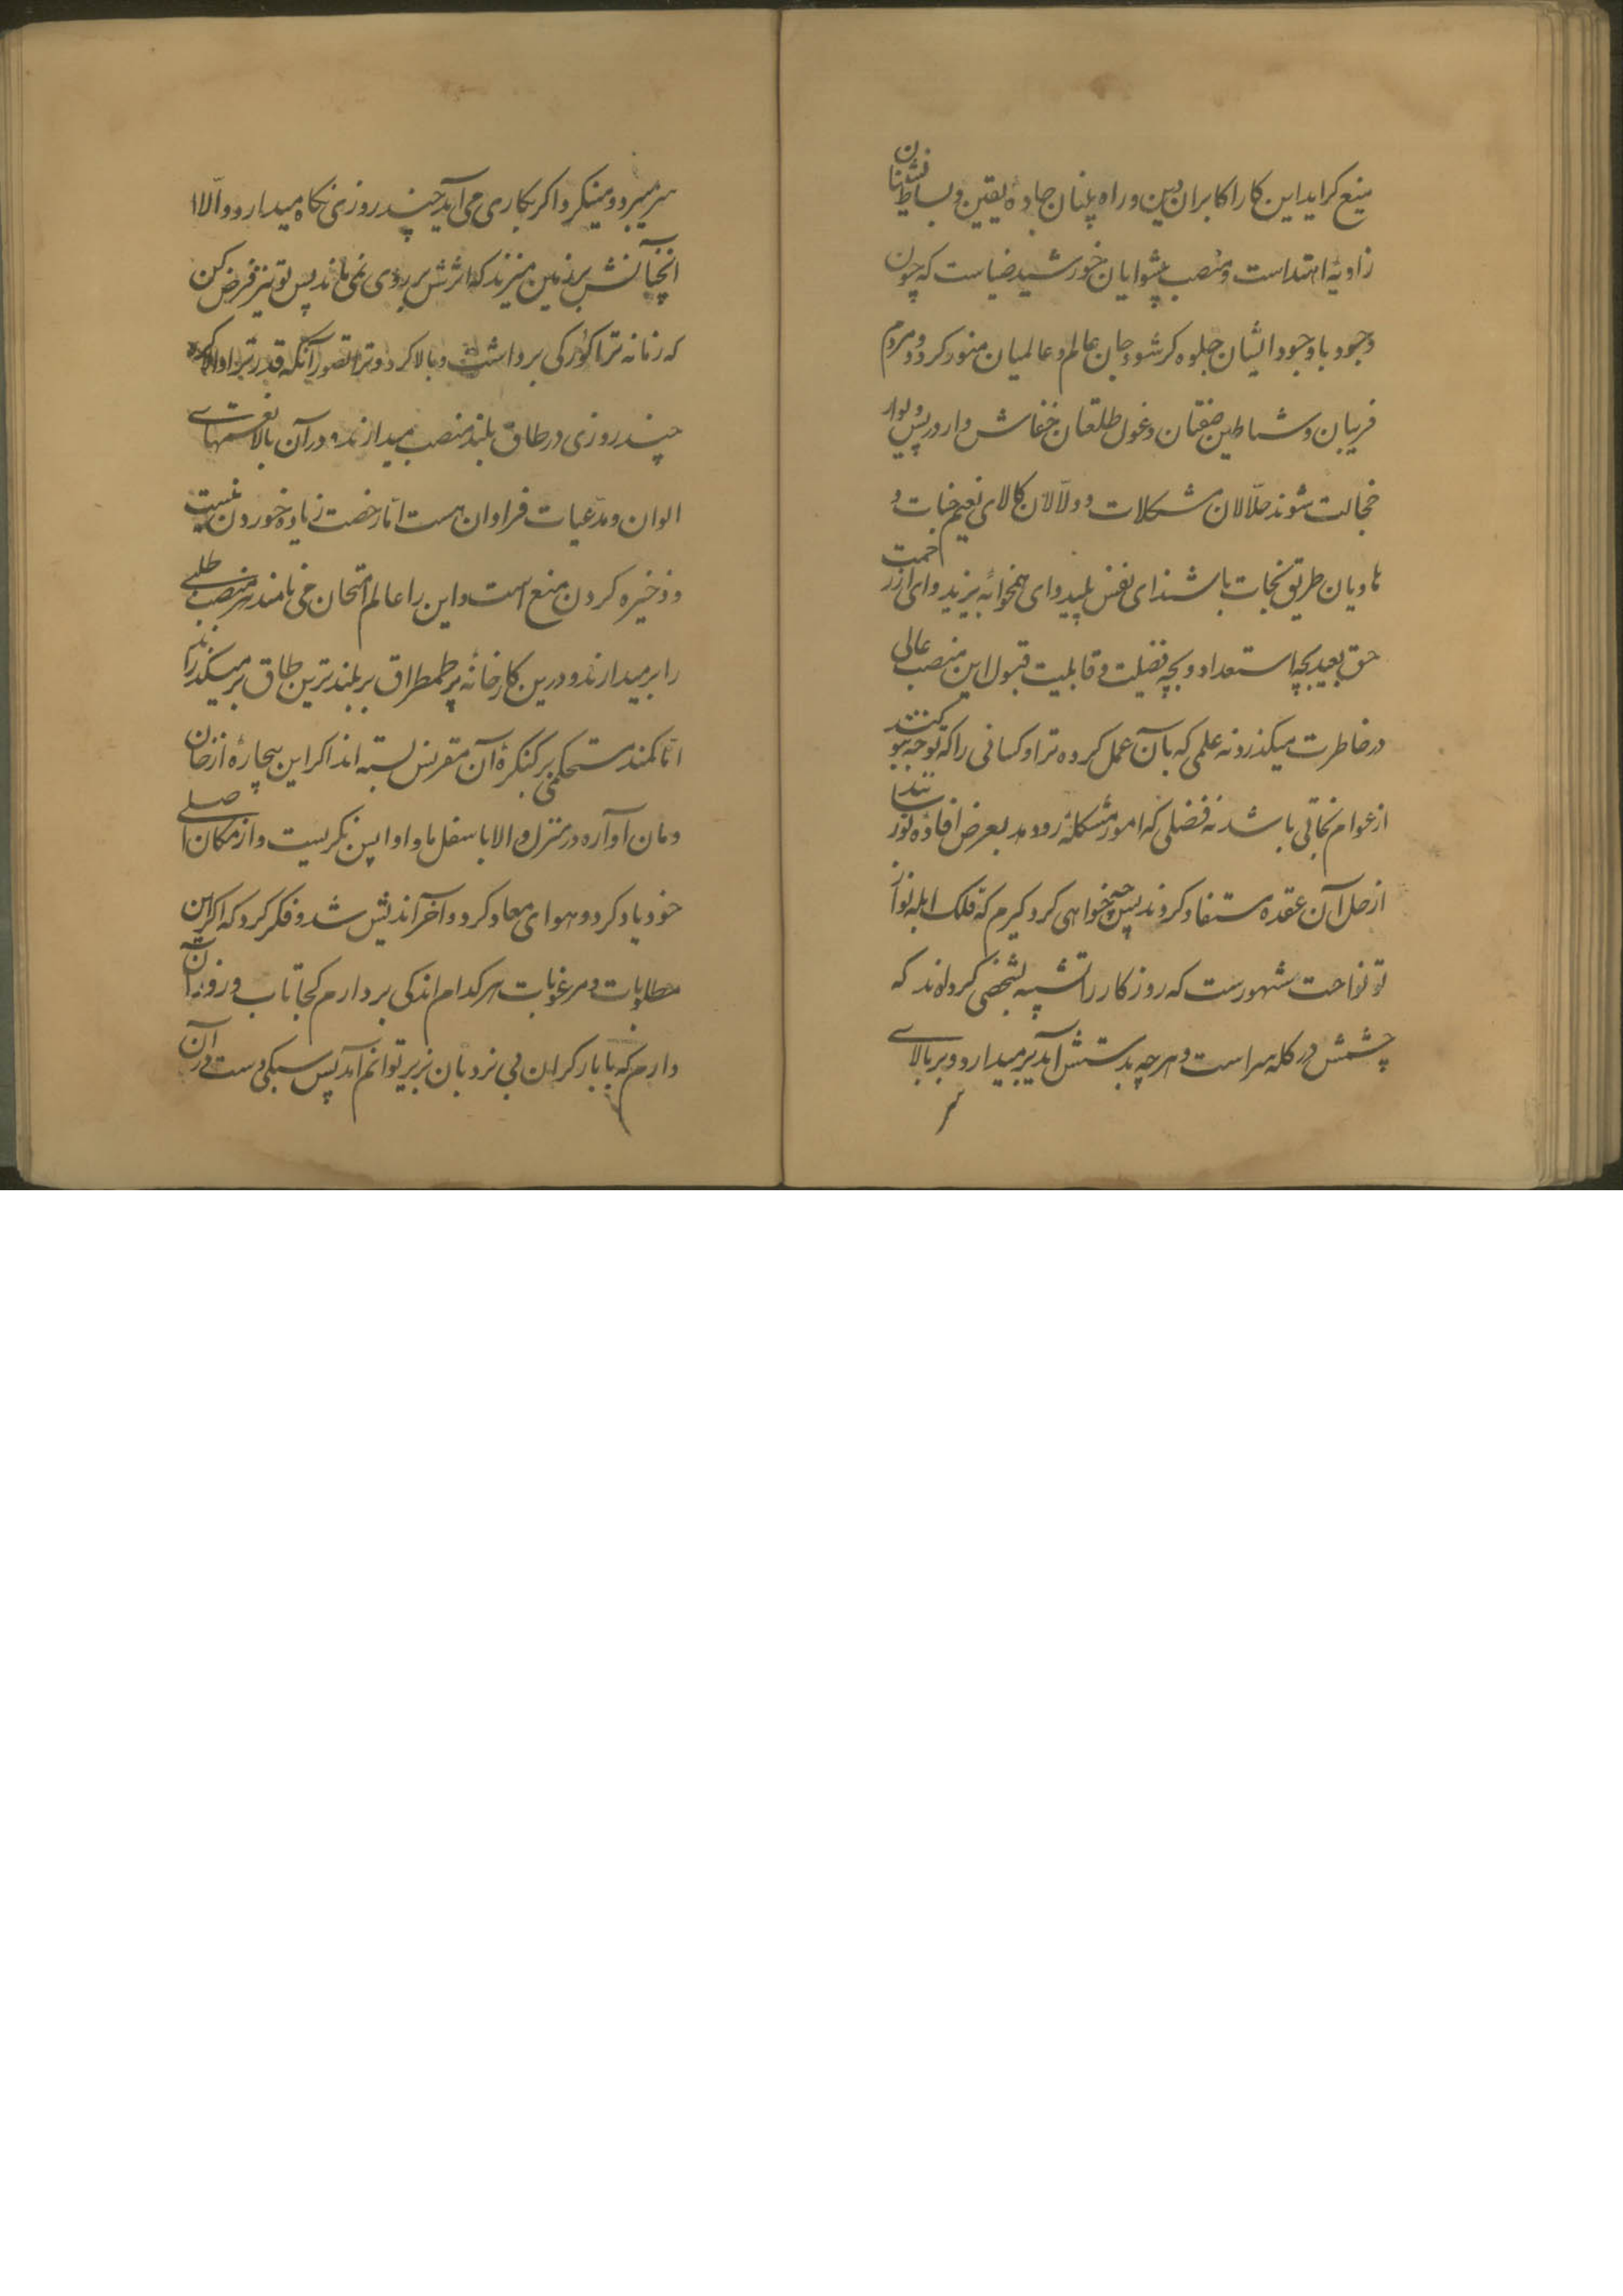 منیع گراید این کار اکابران دین و راه پلنان جادهٔ یقین و بساط نشینان
زاویهٔ اهتداست و منصب پیشوایان خورشید ضیاست که چون
وجود با وجود ایشان جلوه گر شود جان عالم و عالمیان منور گردد و مردم
فریبان و شیاطین صفتان و غول طلعتان خفاش وار در پس دیوار
خجالت شوند حلّالان مشکلات و دلّالان کالای نعیم جنات و
هادیان طریق نجات باشند ای نفس پلید و ای همخوابهٔ یزید و ای از رحمت
حق بعید بچه استعداد و بچه فضیلت و قابلیت قبول این منصب عالی
در خاطرت میگذرد نه علمی که بآن عمل کرده ترا و کسانی را که توجه بتو کنند
از عوام نجاتی باشد نه فضلی که امور مشکلهٔ رو دهد بعرض افادهٔ تو رسانند تا
از حل آن عقده مستفاد گردند پس چه خواهی کرد گیرم که فلک ابله نواز
تو نواخت مشهورست که روزگار را تشبیه بشخصی کرده‌اند که
چشمش در کله سر است و هرچه بدستش آید برمیدارد و بر بالای
سر
سر میبرد و مینگرد اگر بکاری می‌آید چند روزی نگاه میدارد و الّا
انچنانش بر زمین میزند که اثرش بر روی نمی‌ماند پس تو نیز فرض کن
که زمانه ترا کورکی برداشت و بالا کرد و ترا تصور آنکه قدر ترا والا کرد
چند روزی در طاق بلند منصب میدارند و در آن بالا نعمتهای
الوان و مدعیات فراوان هست امّا رخصت زیاده خوردن نیست
و ذخیره کردن منع است و این را عالم امتحان می‌نامند هر منصب طلبی
را برمیدارند و درین کارخانهٔ پر طمطراق بر بلندترین طاق بر میگذرانند
امّا کمند مستحکمی بر کنگرهٔ آن مقرنس بسته‌اند اگر این بیچارهٔ از خان
و مان آواره در منزل والا باسفل ماوا واپس نگریست و از مکان اصلی
خود یاد کرد و هوای معاد کرد و آخر اندیش شد و فکر کرد که اگر این
مطلوبات و مرغوبات هر کدام اندکی بردارم کجا تاب و زور آن
دارم که با بار گران بی نردبان بزیر توانم آمد پس سبکدست در آن